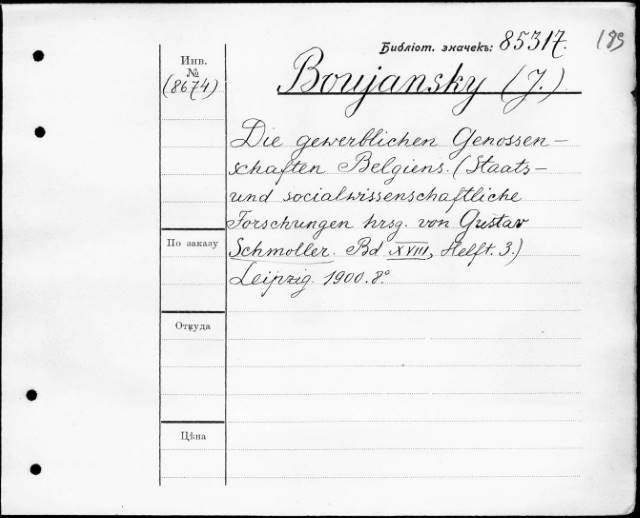 Библіот. значекъ: 85317.
185
Инв.
№
(8674)
Boujansky (J.)
Die gewerblichen Genossen-
schaften Belgiens. (Staats-
und socialwissenschaftliche
Forschungen hrsg. von Gustav
По заказу
Schmoller. Bd XVIII, Helft. 3.)
Leipzig. 1900. 8°
Откуда
Цѣна